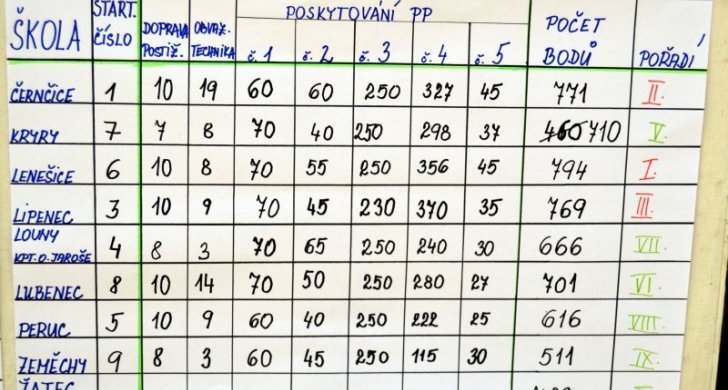 ŠKOLA START. ČÍSLO DOPRAVA POSTIŽ. OBVAZ. TECHNIKA POSKYTOVÁNÍ PP POČET BODŮ POŘADÍ
č. 1 č. 2 č. 3 č. 4 č. 5
ČERNČICE 1 10 19 60 60 250 327 45 771 II.
KRYRY 7 7 8 70 40 250 298 37 710 V.
LENEŠICE 6 10 8 70 55 250 356 45 794 I.
LIPENEC 3 10 9 70 45 230 370 35 769 III.
LOUNY KPT. O. JAROŠE 4 8 3 70 65 250 240 30 666 VII.
LUBENEC 8 10 14 70 50 250 280 27 701 VI.
PERUC 5 10 9 60 40 250 222 25 616 VIII.
ZEMĚCHY 9 8 3 60 45 250 115 30 511 IX.
ŽATEC